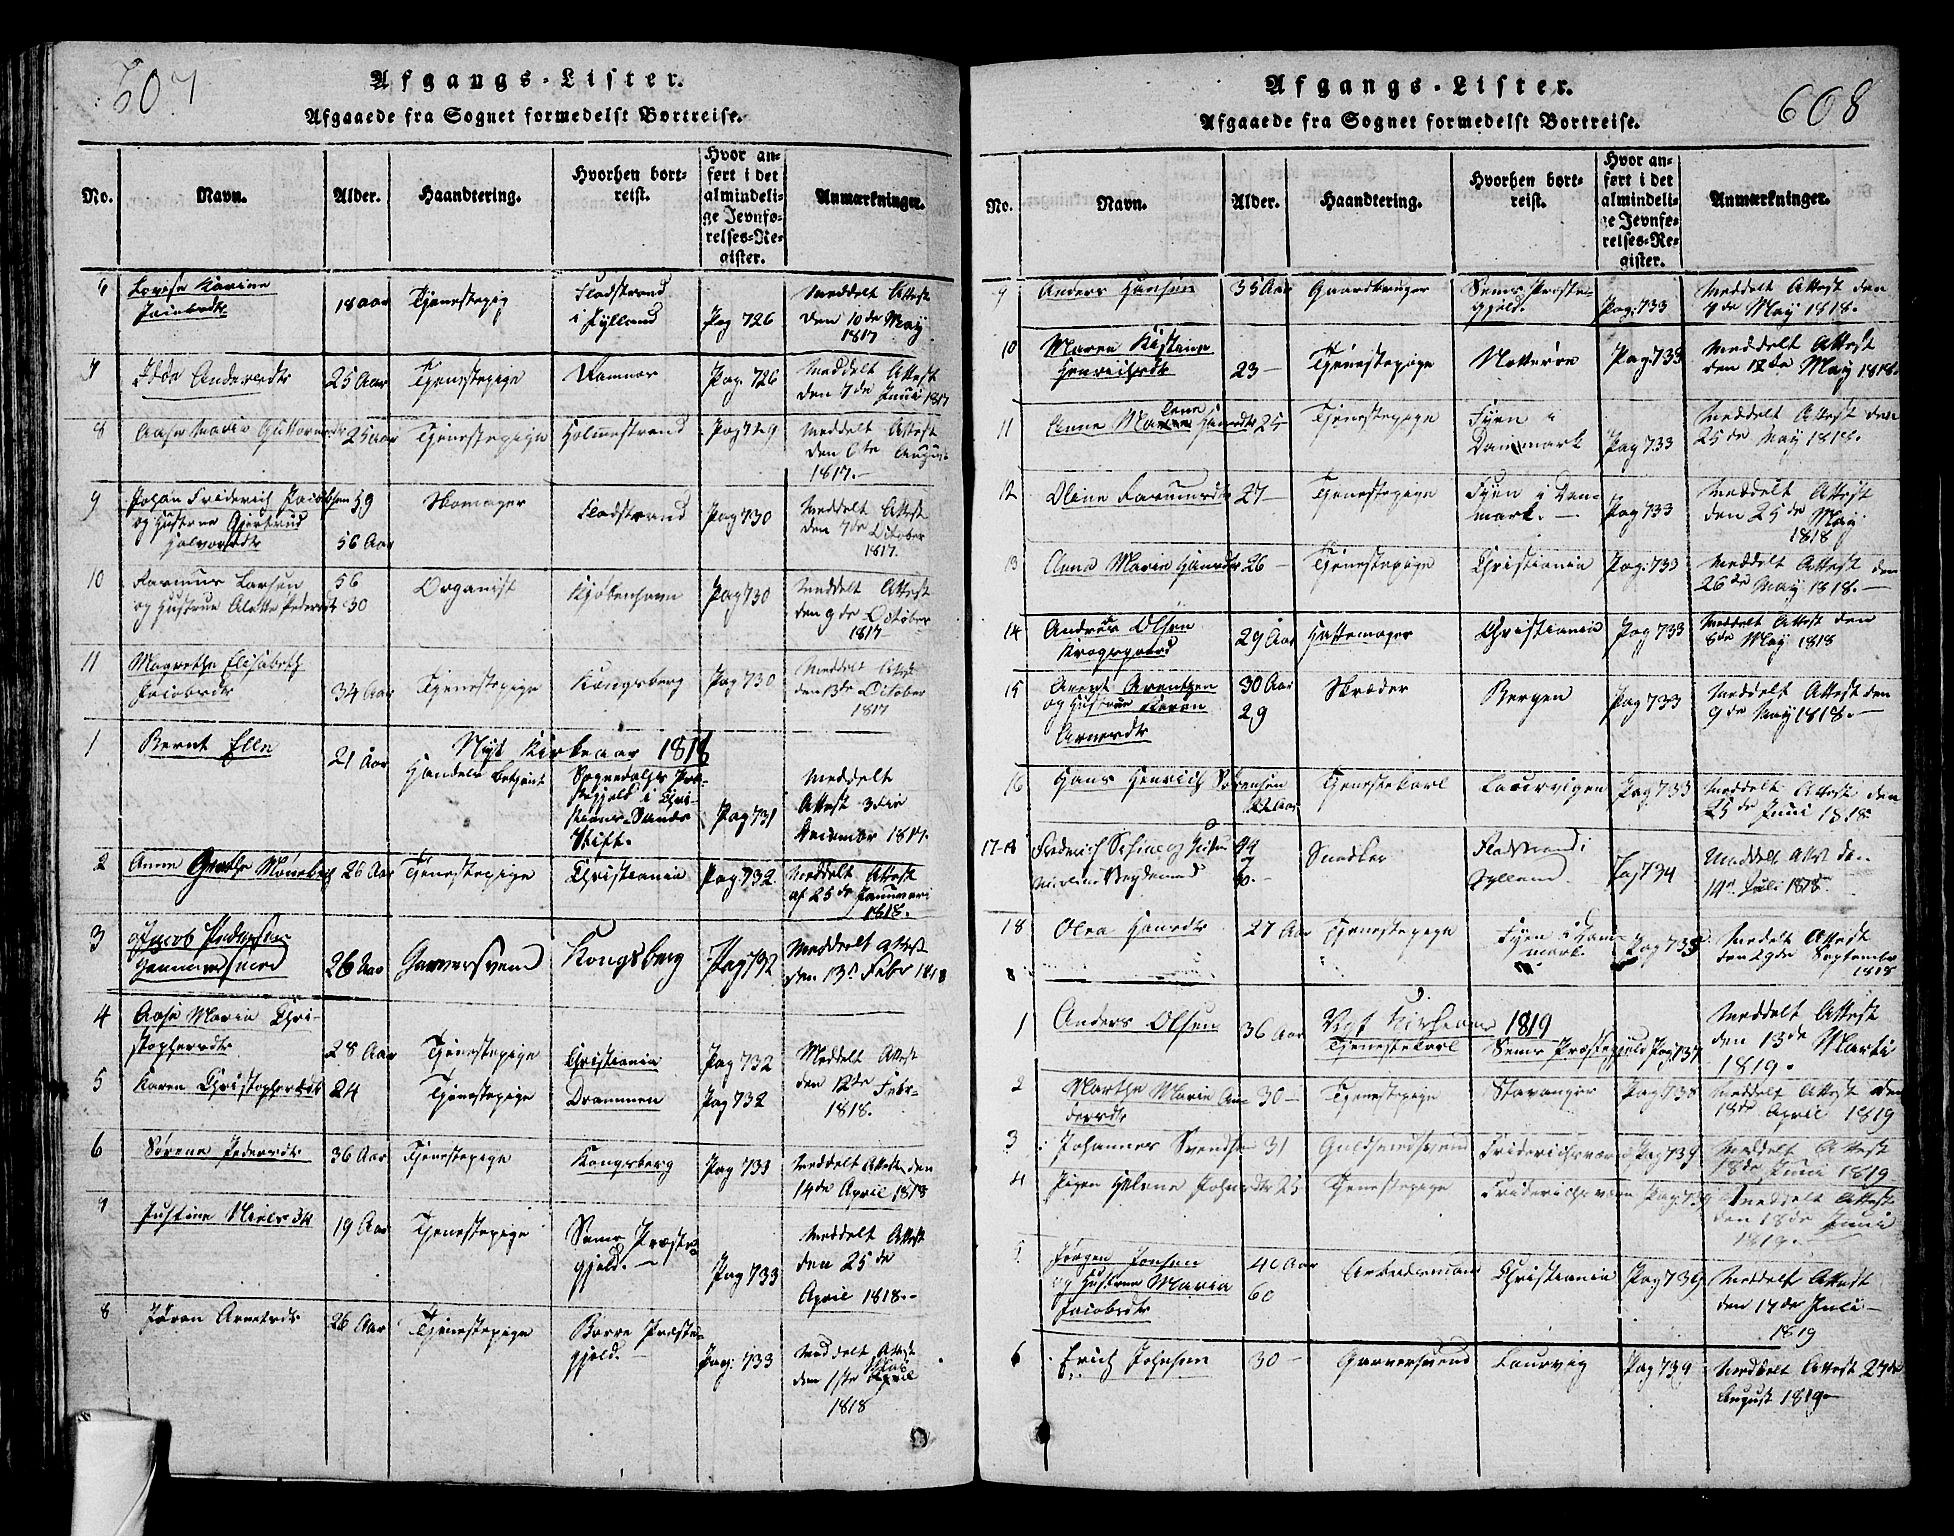 607
Afgangs-Lister.
Afgaaede fra Sognet formedelst Bortreise.
No. Navn. Alder. Haandtering. Hvorhen bortreist. Hvor anført i det almindelige Jevnførelses-Register. Anmærkninger.
6 Lovise Karine Jacobsdtr 18 Aar Tjenestepig Fladstrand i Jylland Pag 726 Meddelt Attest den 10de May 1817
7 Andersdtr 25 Aar Tjenestepige Ramnæs Pag. 726 Meddelt Attest den 7de Juni 1817
8 Aase Marie Guttormsdtr 25 Aar Tjenestepige Holmestrand Pag 729 Meddelt Attest den 6te August 1817.
9 Johan Friderich Jacobsen 59 Skomager Fladstrand Pag 730 Meddelt Attest den 7de October 1817.
og Hustrue Gjertrud Halvorsdtr 56 Aar
10 Rasmus Larsen 56 Organist Kjøbenhavn Pag 730 Meddelt Attest den 9de October 1817
og Hustrue Alette Pedersdt 30
11 Magrethe Elisabeth Jacobsdtr 34 Aar Tjenestepige Kongsberg Pag 730 Meddelt Attest den 13de October 1817
Nyt Kirkeaar 1818
1 Bernt Elle 21 Aar Handels betjent Sognedalens Præstegjeld i Christians-Sands Stift. Pag 731 Meddelt Attest 3die December 1817.
2 Anne Grethe 26 Aar Tjenestepige Christiania Pag 732 Meddelt Attest af 25de Januari 1818.
3 Jacob Pedersen 26 Aar Garversvend Kongsberg Pag 732 Meddelt Attest den 13de Febr 1818
4 Aase Maria Christophersdtr 28 Aar Tjenestepige Christiania Pag 732 Meddelt Attest
5 Karen Christophersdtr 24 Tjenestepige Drammen Pag 732 den 12de Febr. 1818.
6 Sørene Pedersdtr 36 Aar Tjenestepige Kongsberg Pag 733 Meddelt Attest den 14de April 1818
7 Justine Nielsdtr 19 Aar Tjenestepige Sems Præstegjeld. Pag 733 Meddelt Attest den 25de April 1818.
8 Jøran Arnesdtr 26 Aar Tjenestepige Borre Præstegjeld. Pag: 733 Meddelt Attest den 1ste May 1818
608
Afgangs-Lister.
Afgaaede fra Sognet formedelst Bortreise.
No. Navn. Alder. Haandtering. Hvorhen bortreist. Hvor anført i det almindelige Jevnførelses-Register. Anmærkninger.
9 Anders Hansen 35 Aar Gaardbruger Sems Præstegjeld. Pag: 733 Meddelt Attest den 7de May 1818.
10 Maren Kistine Henrichsdtr 23 Tjenestepige Nøtterøe Pag: 733 Meddelt Attest den 12de May 1818
11 Anne Malene Hansdtr 25 Tjenestepige Fyen i Danmark Pag 733 Meddelt Attest den 25de May 1818.
12 Oline Rasmusdtr 27 Tjenestepige Fyen i Danmark. Pag 733 Meddelt Attest den 25de May 1818
13 Anna Marie Hansdtr 26 Tjenestepige Christiania Pag: 733 Meddelt Attest den 26de May 1818.
14 Andreas Olsen Krogsgaard 29 Aar Hattemager Christiania Pag 733 Meddelt Attest den 8de May 1818
15 Arentzen 30 Aar Skræder Bergen Pag 733 Meddelt Attest den 9de May 1818.
og Hustrue Karen Arnesdtr 29
16 Hans Henrich Sørensen Tjenestekarl Laurvigen Pag 733 Meddelt Attest den 25de Juni 1818
17-18 Frederich Snedker Fladstrand i Jylland Pag 734 Meddelt Att. den 14de Juli 1818
18 Olea Hansdtr 27 Aar Tjenestepige Fyen i Danmark. Pag 735 Meddelt Attest den 29de September 1818
Nyt Kirkeaar 1819
1 Anders Olsen 36 Aar Tjenestekarl Sems Præstegjeld Pag 737 Meddelt Attest den 13de Martii 1819.
2 Marthe Marie Andersdtr 30 Tjenestepige Stavanger Pag 738 Meddelt Attest den 18de April 1819
3 Johannes Svendsen 31 Guldsmedsvend Friderichsværn Pag 739 Meddelt Attest 18de Juni 1819
4 Pigen Helene Johnsdtr 25 Tjenestepige Friderichsværn Pag: 739 Meddelt Attest den 18de Juni 1819.
5 Jørgen Jonsen 40 Aar Arbeidsmand Christiania Pag 739 Meddelt Attest den 17de Juli 1819
og Hustrue Maria Jacobsdtr 60
6 Erich Johnsen 30 Garversvend Laurvig Pag 739 Meddelt Attest 27de August 1819